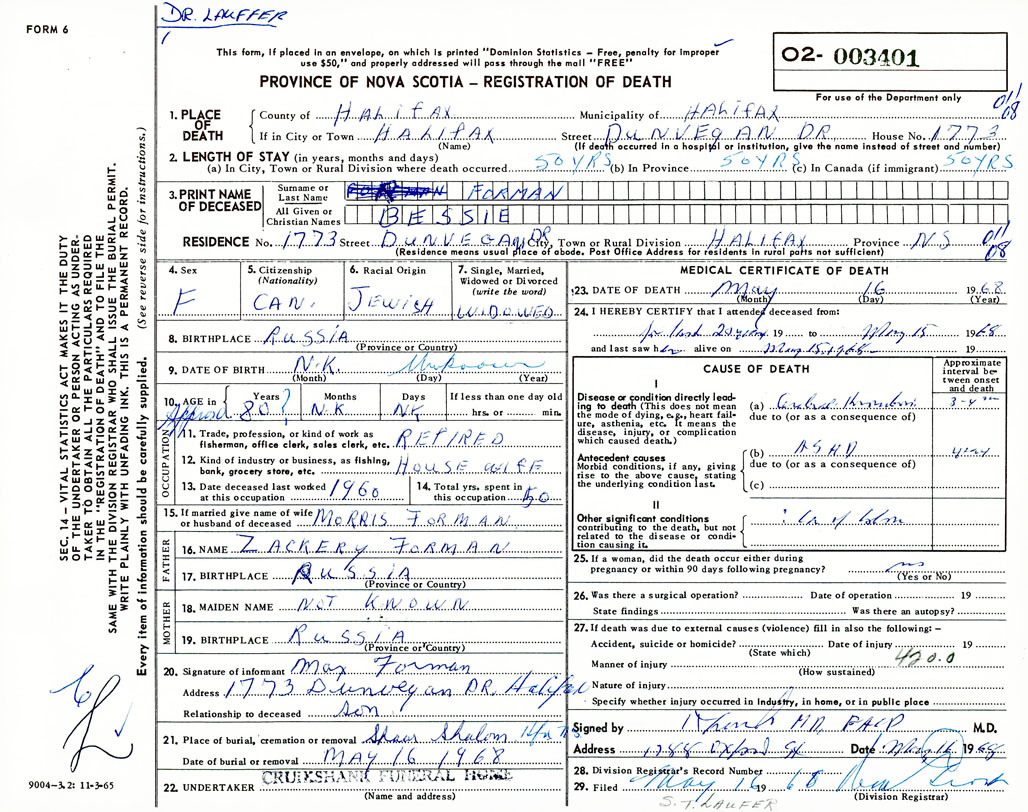 DR. LAUFFER
FORM 6
This form, if placed in an envelope, on which is printed "Dominion Statistics – Free, penalty for improper
use $50," and properly addressed will pass through the mail "FREE"
PROVINCE OF NOVA SCOTIA – REGISTRATION OF DEATH
O2- 003401
For use of the Department only
011
08
1. PLACE OF DEATH
County of HALIFAX Municipality of HALIFAX
If in City or Town HALIFAX Street DUNVEGAN DR House No. 1773
(Name) (If death occurred in a hospital or institution, give the name instead of street and number)
2. LENGTH OF STAY (in years, months and days)
(a) In City, Town or Rural Division where death occurred 50 YRS (b) In Province 50 YRS (c) In Canada (if immigrant) 50 YRS
3. PRINT NAME OF DECEASED
Surname or Last Name FORMAN
All Given or Christian Names BESSIE
RESIDENCE No. 1773 Street DUNVEGAN DR City, Town or Rural Division HALIFAX Province NS
011
08
(Residence means usual place of abode. Post Office Address for residents in rural parts not sufficient)
4. Sex
F
5. Citizenship
(Nationality)
CAN.
6. Racial Origin
JEWISH
7. Single, Married,
Widowed or Divorced
(write the word)
WIDOWED
8. BIRTHPLACE RUSSIA
(Province or Country)
9. DATE OF BIRTH N.K. Unknown
(Month) (Day) (Year)
10. AGE in Years Months Days If less than one day old
Approx 80? N.K NK hrs. or min.
OCCUPATION
11. Trade, profession, or kind of work as
fisherman, office clerk, sales clerk, etc. RETIRED
12. Kind of industry or business, as fishing,
bank, grocery store, etc. HOUSE WIFE
13. Date deceased last worked
at this occupation 1960
14. Total yrs. spent in
this occupation 50
15. If married give name of wife
or husband of deceased MORRIS FORMAN
FATHER
16. NAME ZACKERY FORMAN
17. BIRTHPLACE RUSSIA
(Province or Country)
MOTHER
18. MAIDEN NAME NOT KNOWN
19. BIRTHPLACE RUSSIA
(Province or Country)
20. Signature of informant Max Forman
Address 1773 Dunvegan DR. Halifax
Relationship to deceased Son
21. Place of burial, cremation or removal Shaar Shalom Hfx NS
Date of burial or removal MAY 16 1968
CRUIKSHANK FUNERAL HOME
22. UNDERTAKER
(Name and address)
MEDICAL CERTIFICATE OF DEATH
23. DATE OF DEATH May 16 1968
(Month) (Day) (Year)
24. I HEREBY CERTIFY that I attended deceased from:
for last 20 years 19 to May 15 1968
and last saw her alive on May 15 1968 19
CAUSE OF DEATH
Approximate
interval between
onset
and death
I
Disease or condition directly leading
to death (This does not mean
the mode of dying, e.g., heart failure,
asthenia, etc. It means the
disease, injury, or complication
which caused death.)
(a) Cerebral Thrombosis 3-4
due to (or as a consequence of)
Antecedent causes
Morbid conditions, if any, giving
rise to the above cause, stating
the underlying condition last.
(b) ASHD years
due to (or as a consequence of)
(c)
II
Other significant conditions
contributing to the death, but not
related to the disease or condition
causing it.
Ca of Colon
25. If a woman, did the death occur either during
pregnancy or within 90 days following pregnancy? no
(Yes or No)
26. Was there a surgical operation? Date of operation 19
State findings Was there an autopsy?
27. If death was due to external causes (violence) fill in also the following: –
Accident, suicide or homicide? Date of injury 19
(State which)
420.0
Manner of injury
(How sustained)
Nature of injury
Specify whether injury occurred in industry, in home, or in public place
Signed by MD, FACP M.D.
Address 1788 Oxford St Date May 16 1968
28. Division Registrar's Record Number
29. Filed May 16 19 68
(Division Registrar)
S. T. LAUFER
SEC. 14 – VITAL STATISTICS ACT MAKES IT THE DUTY
OF THE UNDERTAKER OR PERSON ACTING AS UNDERTAKER
TO OBTAIN ALL THE PARTICULARS REQUIRED
IN THE "REGISTRATION OF DEATH" AND TO FILE THE
SAME WITH THE DIVISION REGISTRAR WHO SHALL ISSUE THE BURIAL PERMIT.
WRITE PLAINLY WITH UNFADING INK. THIS IS A PERMANENT RECORD.
Every item of information should be carefully supplied. (See reverse side for instructions.)
9004-3.2: 11-3-65